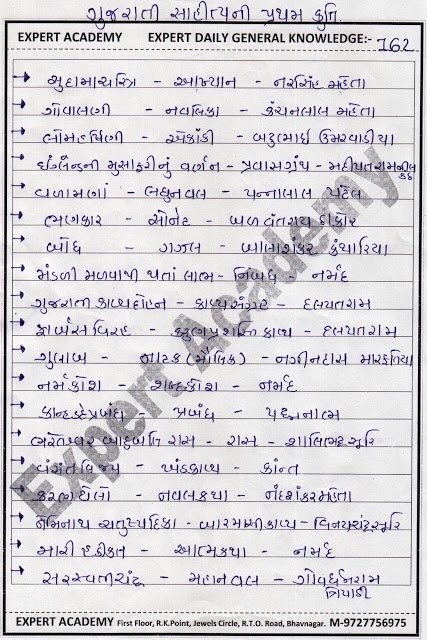 ગુજરાતી સાહિત્યની પ્રથમ કૃતિ.
EXPERT ACADEMY EXPERT DAILY GENERAL KNOWLEDGE:- 162
સુદામાચરિત્ર - આખ્યાન - નરસિંહ મહેતા
ગોવાલણી - નવલિકા - કંચનલાલ મહેતા
લોમહર્ષિણી - એકાંકી - બટુભાઇ ઉમરવાડીયા
ઇંગ્લેન્ડની મુસાફરીનું વર્ણન - પ્રવાસગ્રંથ - મહીપતરામ નીલકંઠ
વળામણાં - લઘુનવલ - પન્નાલાલ પટેલ
ભણકાર - સોનેટ - બળવંતરાય ઠાકોર
બોધ - ગઝલ - બાલાશંકર કંથારિયા
મંડળી મળવાથી થતાં લાભ - નિબંધ - નર્મદ
ગુજરાતી કાવ્યદોહન - કાવ્યસંગ્રહ - દલપતરામ
ફાર્બસ વિરહ - કરુણપ્રશસ્તિ કાવ્ય - દલપતરામ
ગુલાબ - નાટક (મૌલિક) - નગીનદાસ મારફતિયા
નર્મકોશ - શબ્દકોશ - નર્મદ
કાન્હડદેપ્રબંધ - પ્રબંધ - પદ્મનાભ
ભરતેશ્વર બાહુબલિ રાસ - રાસ - શાલિભદ્રસૂરિ
વસંતવિજય - ખંડકાવ્ય - કાન્ત
કરણઘેલો - નવલકથા - નંદશંકર મહેતા
નેમિનાથ ચતુષ્પદિકા - બારમાસીકાવ્ય - વિનયચંદ્રસૂરિ
મારી હકીકત - આત્મકથા - નર્મદ
સરસ્વતીચંદ્ર - મહાનવલ - ગોવર્ધનરામ ત્રિપાઠી
Expert Academy
EXPERT ACADEMY First Floor, R.K.Point, Jewels Circle, R.T.O. Road, Bhavnagar. M-9727756975